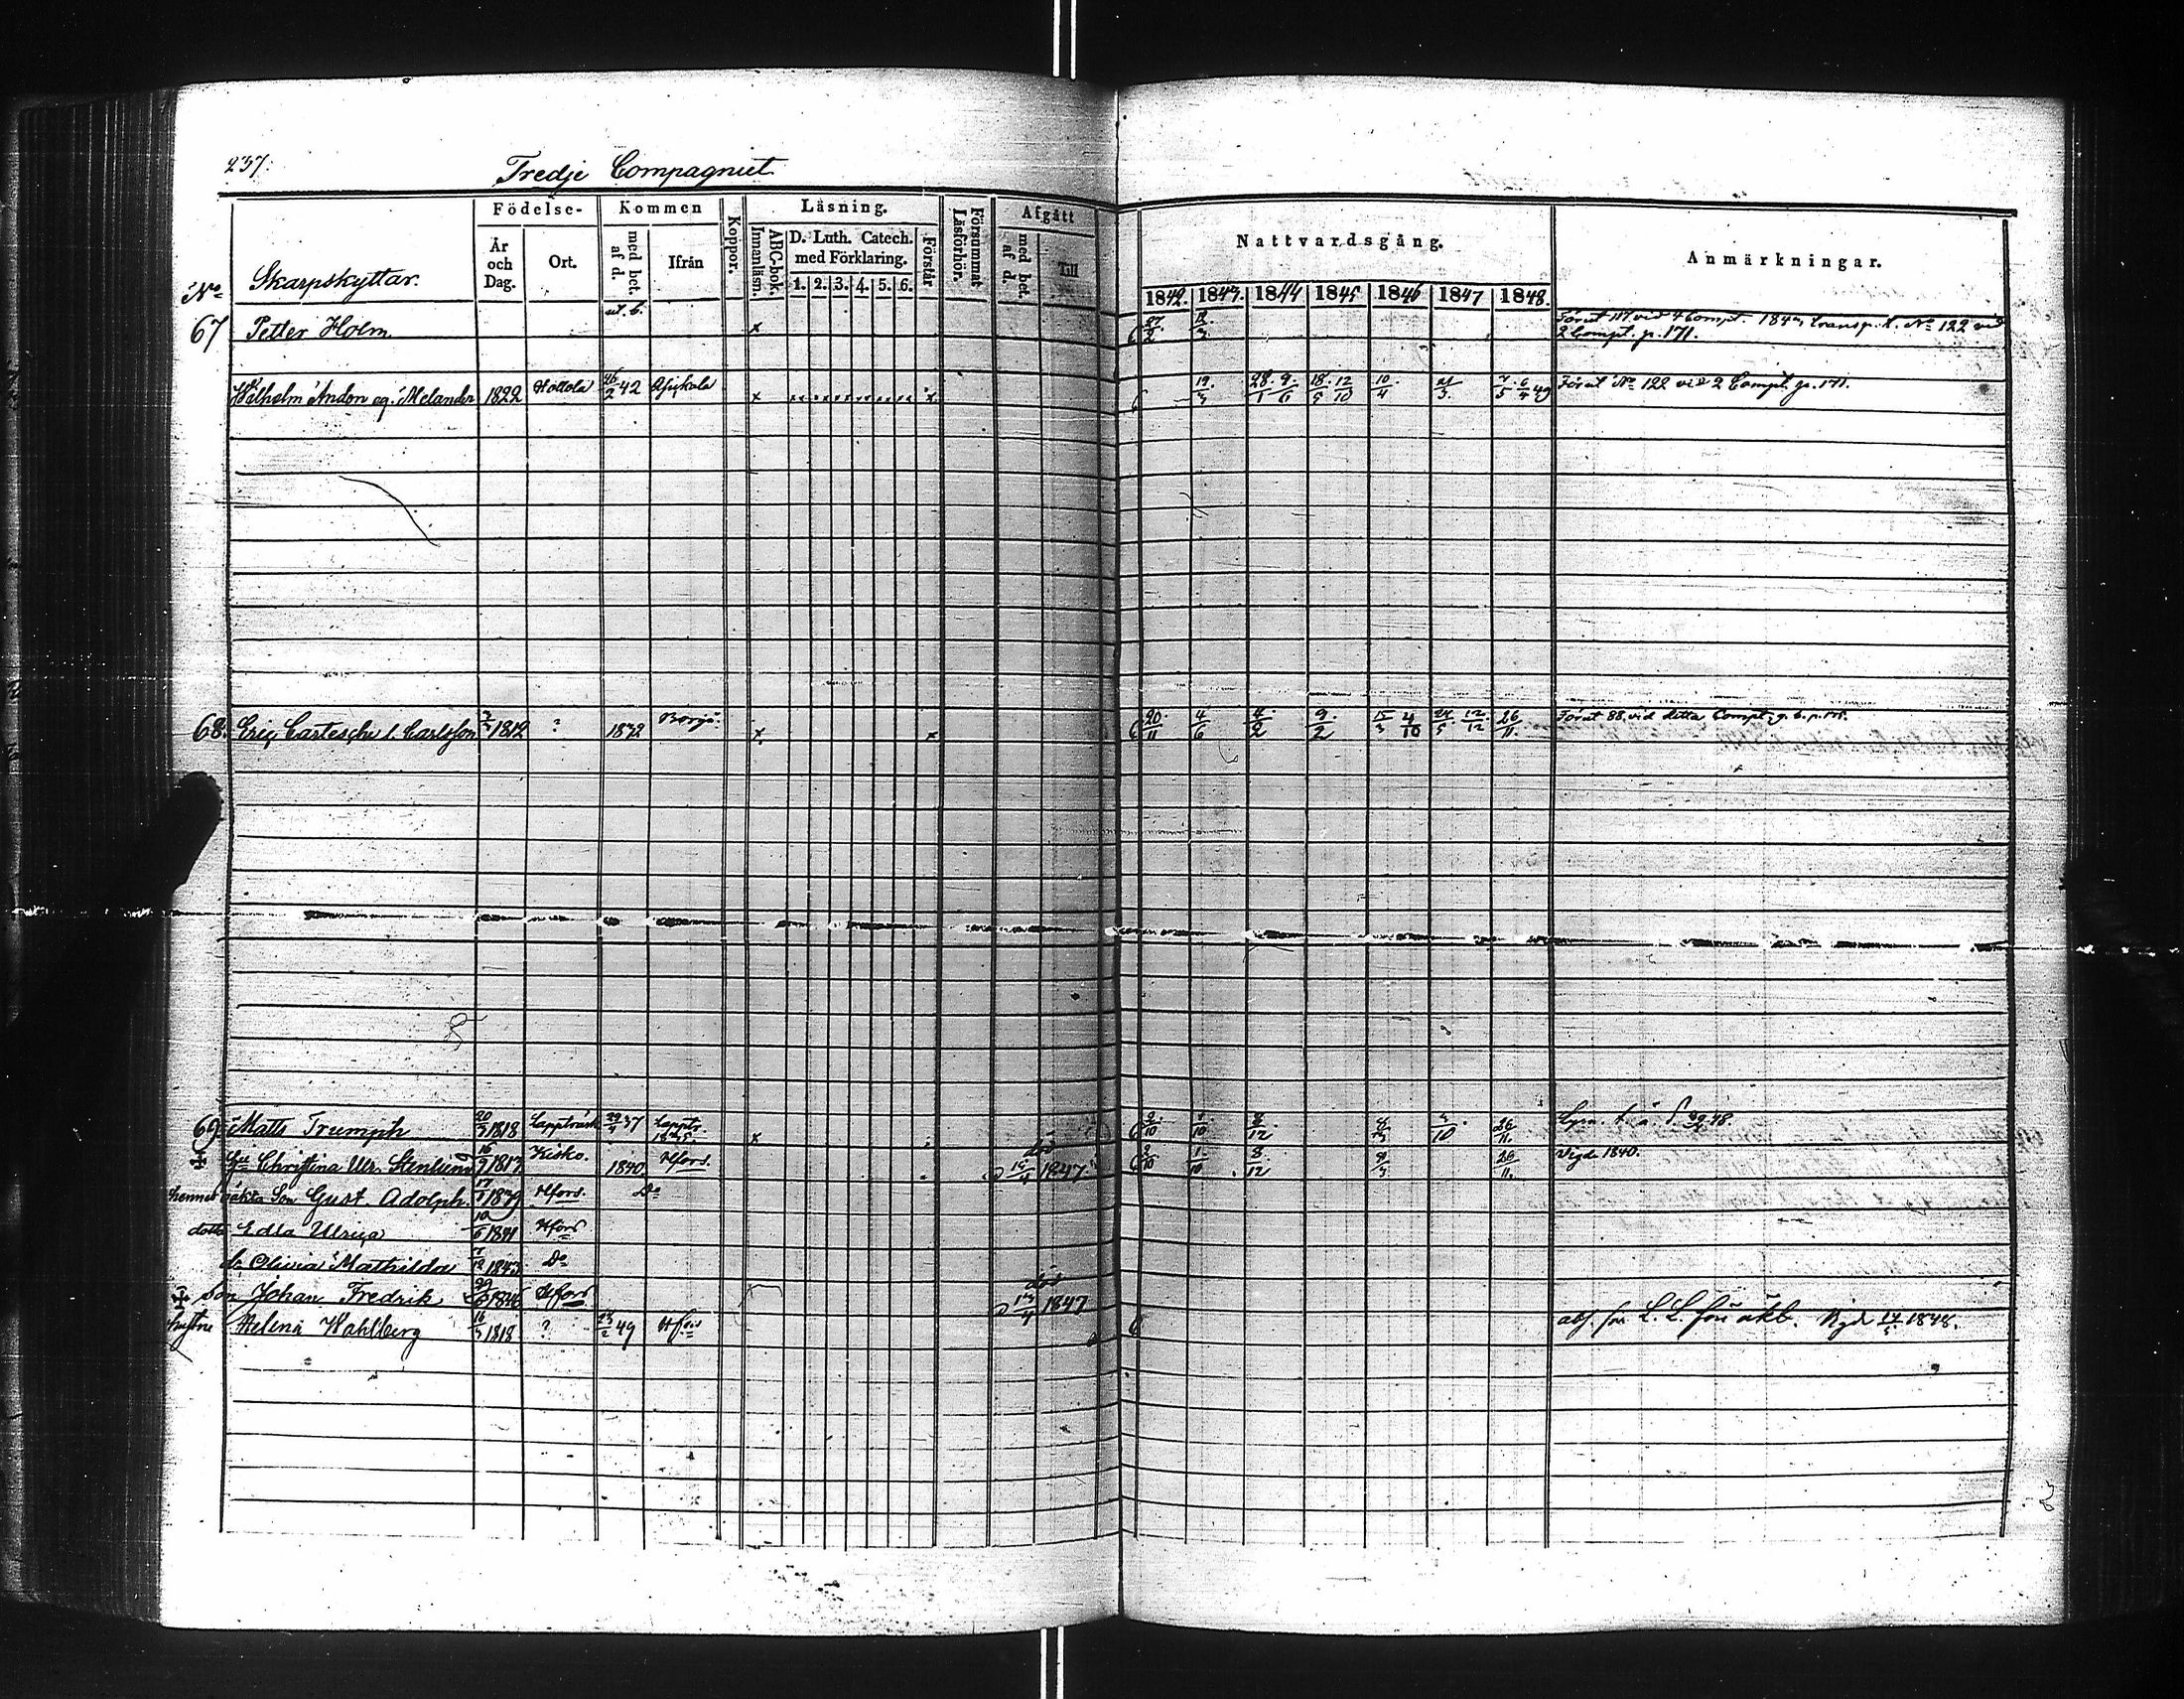 237.
Tredje Compagniet
No Skarpskyttar. Födelse- År och Dag. Ort. Kommen med bet. af d. Ifrån Koppor. Läsning. ABC-bok. Innanläsn. D. Luth. Catech. med Förklaring. 1. 2. 3. 4. 5. 6. Förstår Försummat Läsförhör. Afgått med bet. af d. Till Nattvardsgång. 1842. 1843. 1844 1845 1846 1847 1848. Anmärkningar.
67 Petter Holm ut. b. x 27/2 12/3 Förut 117 vid 4 Compt. No 122 vid
2 Compt. p. 171.
Wilhelm Andon eg. Melander 1822 Hollola 26/2 42 x x 19/3 28/1 9/6 18/5 12/10 10/4 21/3 7/5 6/4 49 Förut No 122 vid 2 Compt. p. 171.
68. Eric Carlsson 3/3 1812 ? 1832 Borgå x x 20/11 4/6 4/2 9/2 15/3 4/10 24/5 12/12 26/11 Förut 88 vid detta Compt.
69. Matts Trumph 20/3 1818 Lappträsk 29/4 37 Lapptr. x 2/10 1/10 8/12 8/3 3/10 26/11. 48.
Hu Christina Ulr. Stenlund 16/9 1817 Kisko. 1840 Hfors. död 15/4 1847 2/10 1/10 8/12 8/3 26/11. Vigde 1840.
hennes oäkta Son Gust. Adolph. 17/1 1839 Hfors. Do
dott. Edla Ulrica 10/6 1841 Hfors
d. Olivia Mathilda 7/12 1843 Do
Son Johan Fredrik 1846 Hfors död 13/4 1847
hustru Helena Wahlberg 16/3 1818 ? 23/2 49 Hfors abs. för L. L. för äkt. 14/5 1848.